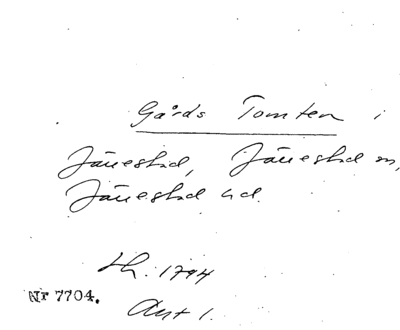 Gårds Tomten i
Järrestad, Järrestad sn,
Järrestad hd.
th. 1794
Nr 7704.
Akt 1.